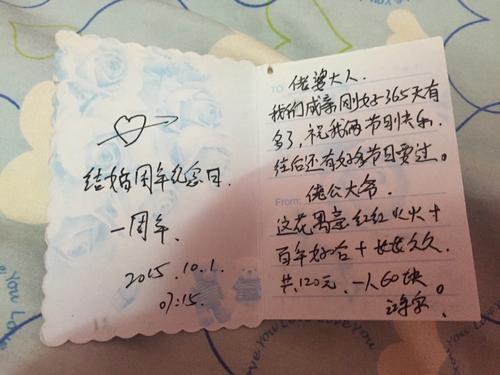 结婚周年纪念日.
一周年.
2015.10.1.
07:15.
TO
佬婆大人.
我们成亲刚好365天有
多了,祝我俩节日快乐.
往后还有好多节日要过。
From:
佬公大爷.
这花寓意红红火火+
百年好合+长长久久.
共120元.一人60块
Love You